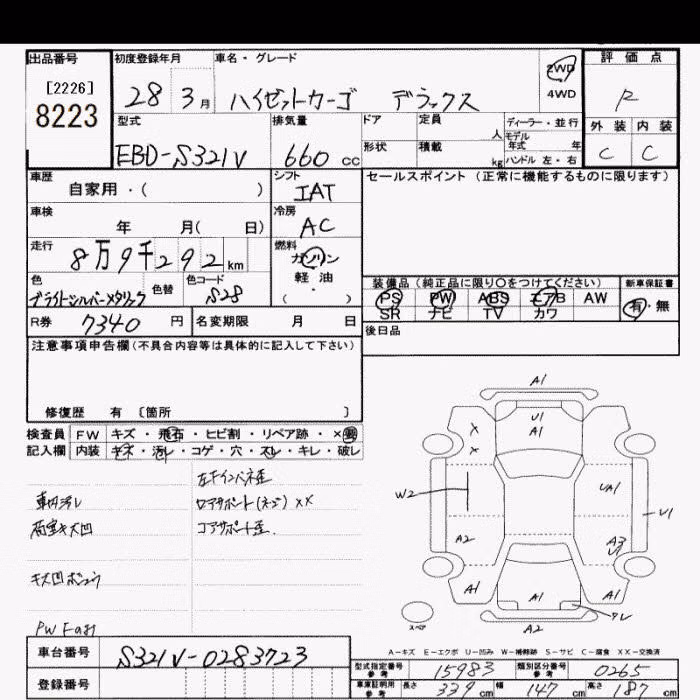 出品番号
[2226]
8223
初度登録年月
28 3月
車名・グレード
ハイゼットカーゴ デラックス
2WD
4WD
評価点
R
外装 内装
C C
型式
EBD-S321V
排気量
660 cc
ドア
定員
人
形状
積載
kg
ディーラー・並行
モデル
年式 年
ハンドル 左・右
車歴
自家用・( )
シフト
IAT
セールスポイント (正常に機能するものに限ります)
車検
年 月( 日)
冷房
AC
走行
8万9千292km
燃料
ガソリン
軽油
・
( )
色
ブライトシルバーメタリック
色替
色コード
S28
装備品 (純正品に限り○をつけてください)
新車保証書
PS PW ABS エアB AW
SR ナビ TV カワ
有・無
R券 7340 円
名変期限 月 日
後日品
注意事項申告欄(不具合内容等は具体的に記入して下さい)
修復歴 有 〔箇所 〕
検査員
記入欄
FW キズ・飛石・ヒビ割・リペア跡・×
内装 キズ・汚レ・コゲ・穴・スレ・キレ・破レ
左下インパネ歪
車内汚レ
ロアサポート(ネジ)××
荷室キズ凹
コアサポート歪
キズ凹
PW
A1
U1
A1
×
×
W2
UA1
U1
A2
A3
U1
A1
A1
A1
A2
スペア
A-キズ E-エクボ U-凹み W-補修跡 S-サビ C-腐食 XX-交換済
車台番号
S321V-0283723
登録番号
型式指定番号
参考
15983
類別区分番号
参考
0265
車庫証明用
参考
長さ 339cm
幅 147cm
高さ 187cm